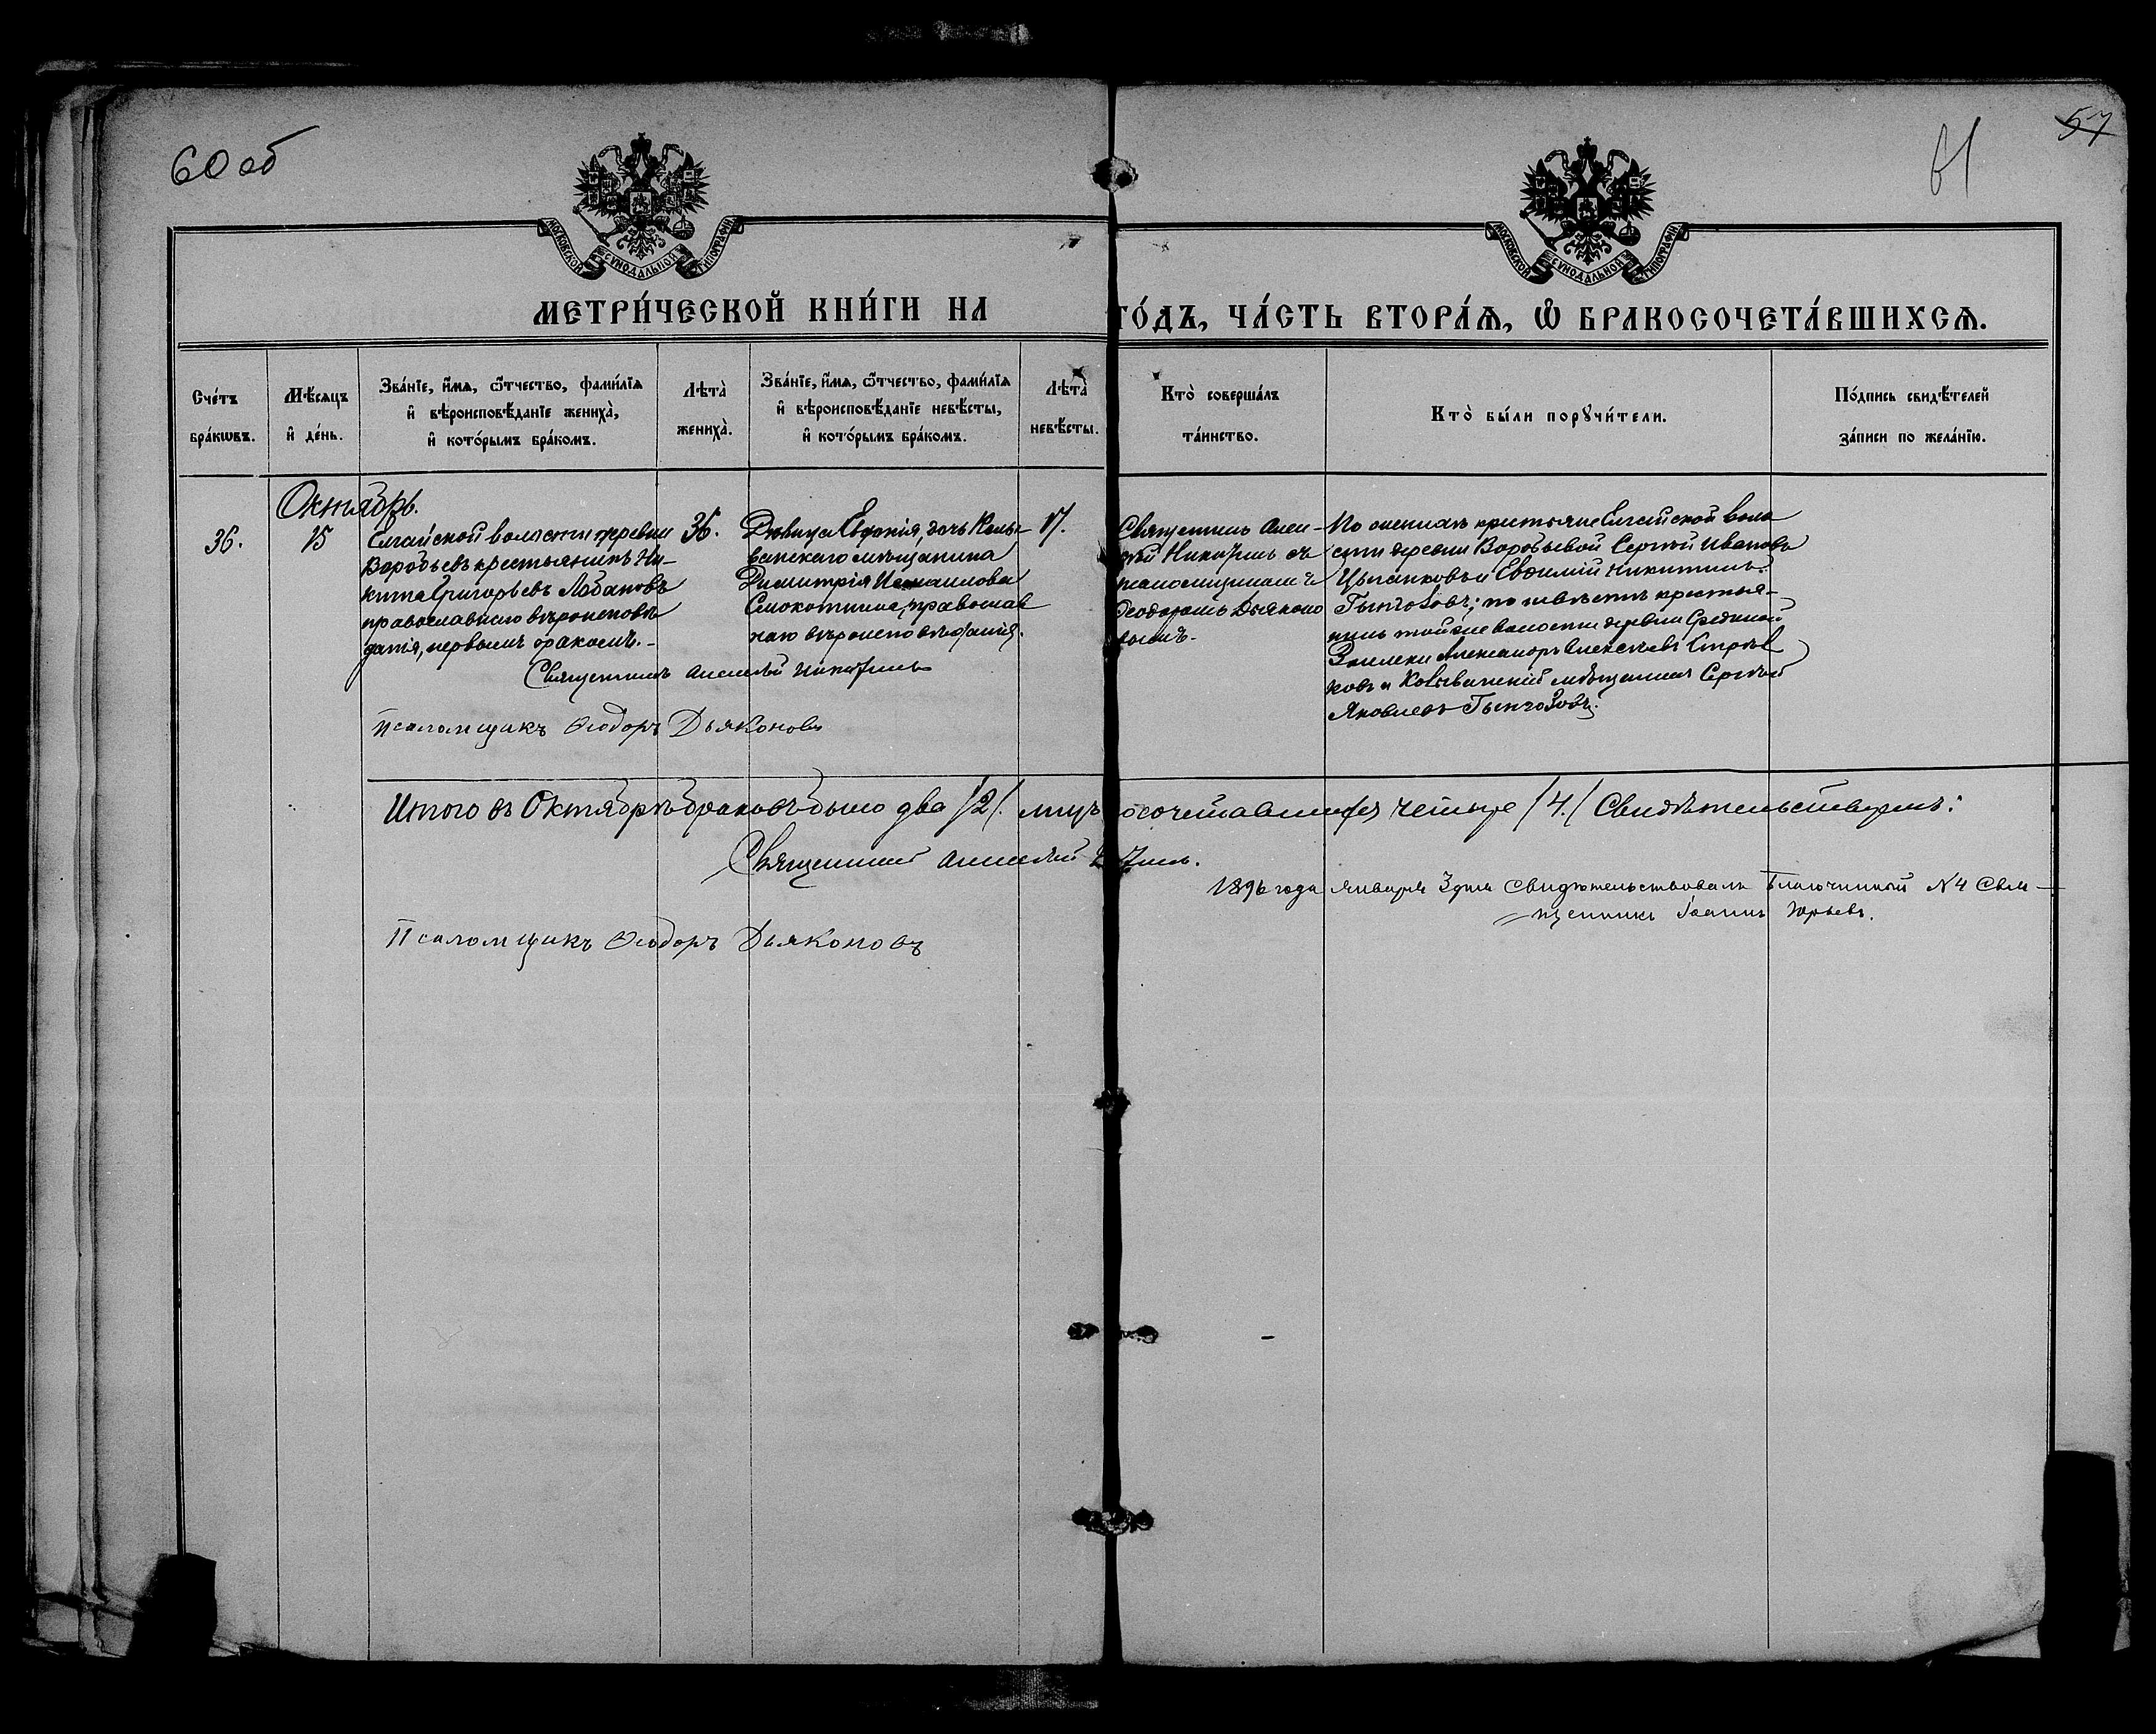 60 об
61
57
МОСКОВСКОЙ СУНОДАЛЬНОЙ ТИПОГРАФІИ
МОСКОВСКОЙ СУНОДАЛЬНОЙ ТИПОГРАФІИ
МЕТРИ́ЧЕСКОЙ КНИ́ГИ НА
ГО́ДЪ, ЧА́СТЬ ВТОРА́Ѧ, Ѡ҆ БРАКОСОЧЕТА́ВШИХСѦ.
Сче́тъ
бра́кѡвъ.
Мѣ́сяцъ
и҆ де́нь.
Зва́нїе, и҆́мѧ, ѻ҆́тчество, фами́лїѧ
и҆ вѣроисповѣ́данїе жениха̀,
и҆ кото́рымъ бра́комъ.
Лѣта̀
жениха̀.
Зва́нїе, и҆́мѧ, ѻ҆́тчество, фами́лїѧ
и҆ вѣроисповѣ́данїе невѣ́сты,
и҆ кото́рымъ бра́комъ.
Лѣта̀
невѣ́сты.
Кто̀ соверша́лъ
та́инство.
Кто̀ бы́ли порꙋчи́тели.
По́дпись свидѣ́телей
за́писи по жела́нїю.
Октябрь.
36.
15
Елгайской волости деревни
Воробьевъ крестьянинъ Ни-
кита Григорьевъ Лобановъ
православнаго вѣроисповѣ
данія, первымъ бракомъ.-
36.
Дѣвица Евдокія, дочь Колы-
ванскаго мѣщанина
Димитрія
Смокотина, православ
наго вѣроисповѣданія.
17.
Священникъ Алек-
сѣй Никитинъ съ
псаломщикомъ
Ѳеодоромъ Дьяконо
вымъ.
По женихѣ крестьяне Елгайской воло
сти деревни Воробьевой Сергѣй Ивановъ
Цыганковъ и Евѳимій Никитинъ
по невѣстѣ крестья-
нинъ той же волости деревни
Александръ Алексѣевъ Стрѣл
ковъ и Колыванскій мѣщанинъ Сергѣй
Яковлевъ
Священникъ Алексѣй Никитинъ
Псаломщикъ Ѳеодоръ Дьяконовъ
Итого въ Октябрѣ браковъ было два /2/. лицъ бракосочетавшихся четыре /4./ Свидѣтельствуемъ:
Священникъ Алексѣй
1896 года января 3 дня свидѣтельствовалъ Благочинный N 4 Свя-
щенникъ Іоаннъ Юрьевъ.
Псаломщикъ Ѳеодоръ Дьяконовъ